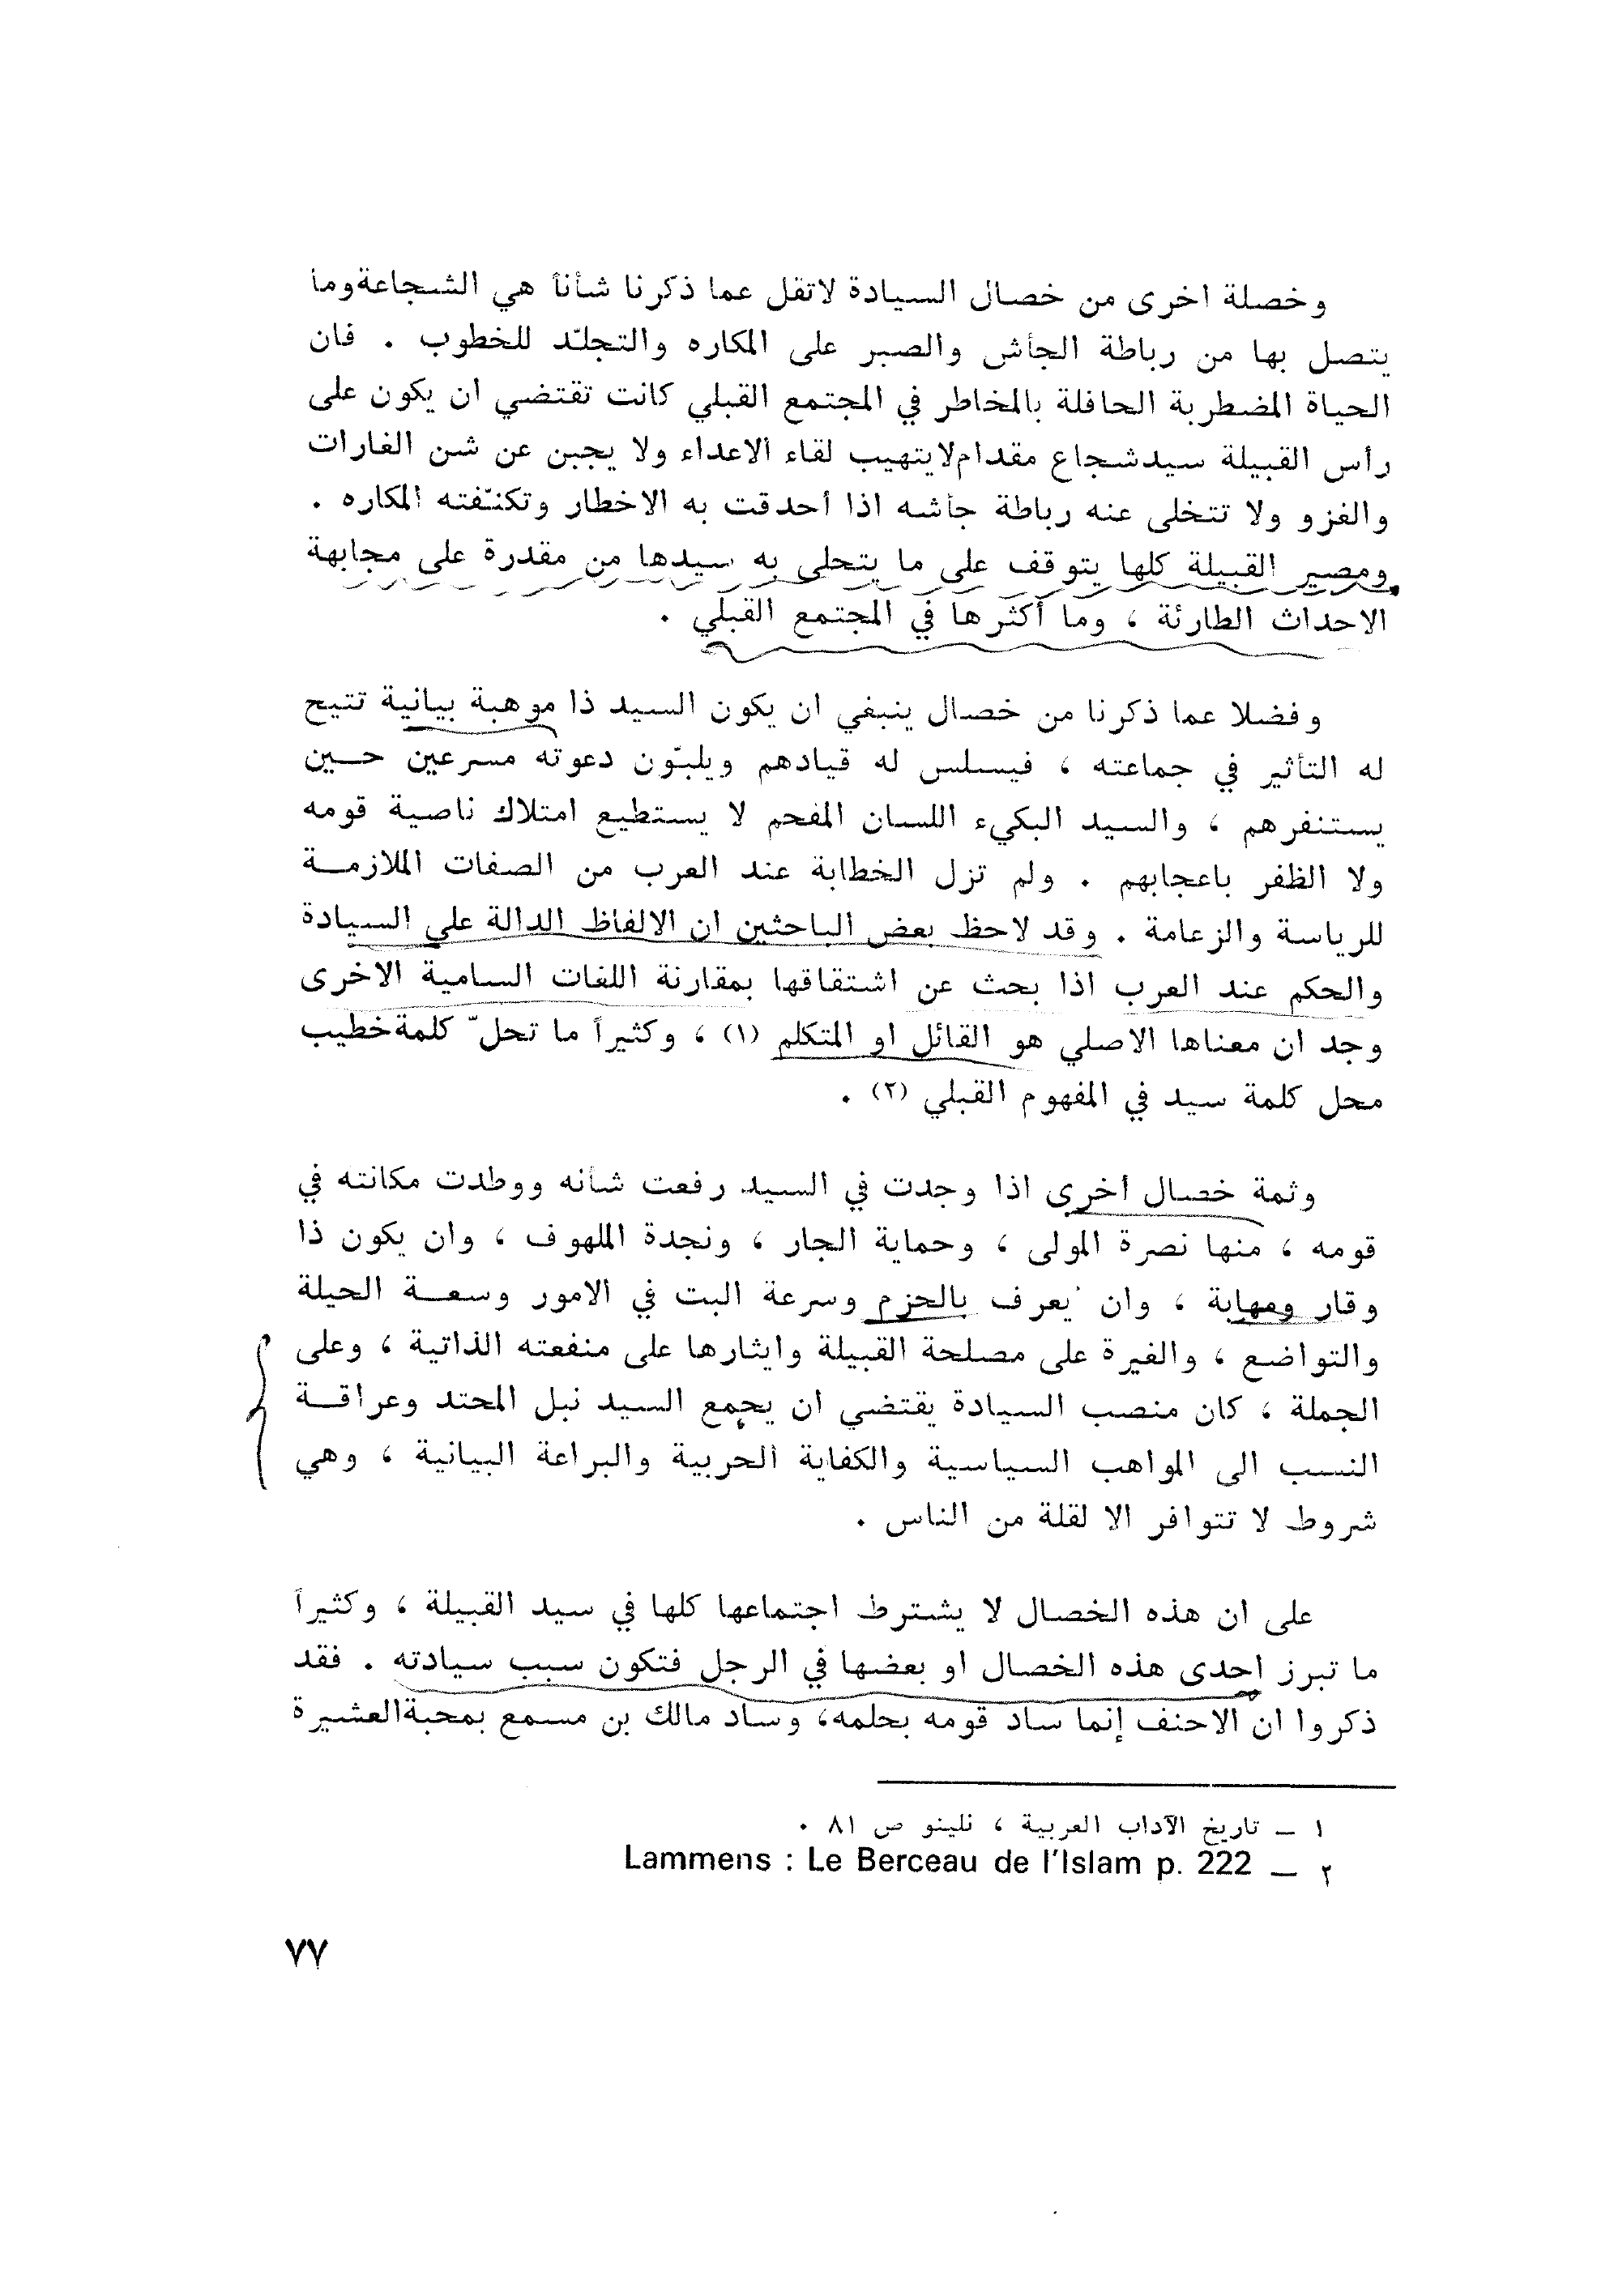 وخصلة اخرى من خصال السيادة لاتقل عما ذكرنا شأناً هي الشجاعةوما
يتصل بها من رباطة الجأش والصبر على المكاره والتجلّد للخطوب . فان
الحياة المضطربة الحافلة بالمخاطر في المجتمع القبلي كانت تقتضي ان يكون على
رأس القبيلة سيدشجاع مقدام لايتهيب لقاء الاعداء ولا يجبن عن شن الغارات
والغزو ولا تتخلى عنه رباطة جأشه اذا أحدقت به الاخطار وتكنّفته المكاره .
ومصير القبيلة كلها يتوقف على ما يتحلى به سيدها من مقدرة على مجابهة
الاحداث الطارئة ، وما أكثرها في المجتمع القبلي .
وفضلا عما ذكرنا من خصال ينبغي ان يكون السيد ذا موهبة بيانية تتيح
له التأثير في جماعته ، فيسلس له قيادهم ويلبّون دعوته مسرعين حين
يستنفرهم ، والسيد البكيء اللسان المفحم لا يستطيع امتلاك ناصية قومه
ولا الظفر باعجابهم . ولم تزل الخطابة عند العرب من الصفات الملازمة
للرياسة والزعامة . وقد لاحظ بعض الباحثين ان الالفاظ الدالة على السيادة
والحكم عند العرب اذا بحث عن اشتقاقها بمقارنة اللغات السامية الاخرى
وجد ان معناها الاصلي هو القائل او المتكلم (١) ، وكثيراً ما تحلّ كلمةخطيب
محل كلمة سيد في المفهوم القبلي (٢) .
وثمة خصال أخرى اذا وجدت في السيد رفعت شأنه ووطدت مكانته في
قومه ، منها نصرة المولى ، وحماية الجار ، ونجدة الملهوف ، وان يكون ذا
وقار ومهابة ، وان يُعرف بالحزم وسرعة البت في الامور وسعة الحيلة
والتواضع ، والغيرة على مصلحة القبيلة وايثارها على منفعته الذاتية ، وعلى
الجملة ، كان منصب السيادة يقتضي ان يجمع السيد نبل المحتد وعراقة
النسب الى المواهب السياسية والكفاية الحربية والبراعة البيانية ، وهي
شروط لا تتوافر الا لقلة من الناس .
على ان هذه الخصال لا يشترط اجتماعها كلها في سيد القبيلة ، وكثيراً
ما تبرز إحدى هذه الخصال او بعضها في الرجل فتكون سبب سيادته . فقد
ذكروا ان الاحنف إنما ساد قومه بحلمه، وساد مالك بن مسمع بمحبةالعشيرة
١ – تاريخ الآداب العربية ، نلينو ص ٨١ .
٢ – Lammens : Le Berceau de l'Islam p. 222
٧٧